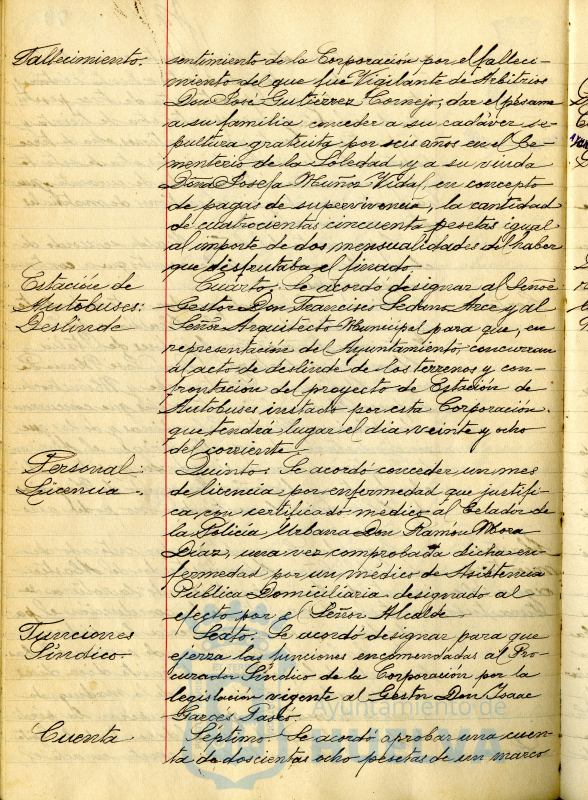 Fallecimiento. sentimiento de la Corporación por el falleci-
miento del que fue Vigilante de Arbitrios
Don José Gutiérrez Cornejo, dar el pésame
a su familia conceder a su cadáver se-
pultura gratuita por seis años en el Ce-
menterio de la Soledad y a su viuda
Doña Josefa Muñoz Vidal, en concepto
de pagas de supervivencia, la cantidad
de cuatrocientas cincuenta pesetas igual
al importe de dos mensualidades del haber
que disfrutaba el finado.
Estación de Cuarto. Se acordó designar al Señor
Autobuses: Gestor Don Francisco Sedano Arce y al
Deslinde Señor Arquitecto Municipal para que, en
representación del Ayuntamiento, concurran
al acto de deslinde de los terrenos y con-
frontación del proyecto de Estación de
Autobuses instado por esta Corporación.
que tendrá lugar el dia veinte y ocho
del corriente.
Personal: Quinto. Se acordó conceder un mes
Licencia. de licencia por enfermedad que justifi-
ca, con certificado médico al Celador de
la Policía Urbana Don Ramón Mora
Diaz, una vez comprobada dicha en-
fermedad por un médico de Asistencia
Pública Domiciliaria designado al
efecto por el Señor Alcalde
Funciones Sexto. Se acordó designar para que
Síndico ejerza las funciones encomendadas al Pro-
curador Síndico de la Corporación por la
legislación vigente al Gestor Don Isaac
Garcés
Cuenta Séptimo. Se acordó aprobar una cuen-
ta de doscientas ocho pesetas de un marco
Ayuntamiento de
HUELVA